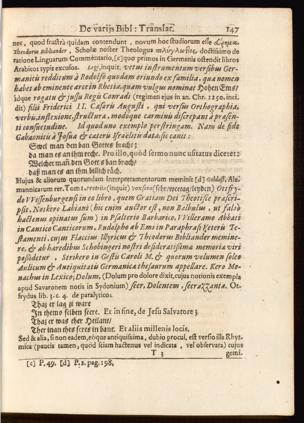 De varijs Bibl: Translat. 147
nec, quod frustrà quidam contendunt, novum hoc studiorum esse
Theodorus Bibliander, Scholæ noster Theologus doctissimo de
ratione Linguarum Commentario, [c] quo primus in Germania ostendit libros
Arabicos typis excusos. inquit, vetus instrumentum versibus Ger-
manicis redditum à Rodolfo quodam oriundo ex familia, quæ nomen
habet ab eminente arce in Rhetia, quam vulgus nominat Hohen Emß
idque rogatu & jussu Regis Conradi (regimen ejus in an. Chr. 1250. inci-
dit) filii Friderici II. Cæsaris Augusti, qui versus Orthographia,
verbis, inflexione, structura, modisque carminis discrepant à præsen-
ti consuetudine. Id quod uno exemplo perstringam. Nam de side
Gabaonitis à Josua & cætera Israelitis data sic canit:
Swel man den ban Gottes bracht;
da man et an ihm rech. Pro illo, quòd sermo nunc usitatus diceret:
Welcher man den Gots ban brach/
daß man es an ihm billich rách.
Hujus & aliorum quorundam Interpretamentorum meminit [d] Goldast. Ala-
mannicarum rer. Tom 1. (inquit)
do Wissenburgensi in 10 libro, quem Gratiam Dei Theotisce præscri-
psit, Notkero Labiani (hic enim auctor est, non Balbulus, ut falsò
hactenus opinatum sum) in Psalterio Barbarico, Willeramo Abbati
in Cantico Canticorum, Rudolpho ab Ems in Paraphrasi Veteris Te-
stamenti, cujus Flaccius Illyricus & Theodorus Bibliander meminê-
re, & ab hæredibus Schobingeri nostri desideratissimæ memoria viri
possidetur, Strickero in Gestis Caroli M. & quorum volumen soleo
Aulicum & Antiquitatis Germanica thesaurum appellare. Kero Mo-
nachus in Lexico, Dolum, (Dolum pro dolore dixit, cujus notionis exempla
apud Savaronem notis in Sydonium) seer, Dolentem,
frydus lib. 3. c. 4. de paralyticos.
Thaz er lag zi ware
In themo selben seere. Et in fine, de Jesu Salvatore:
Thaz er was ther Heilant/
Ther inan thes seres in bant. Et aliis millenis locis.
Sed & alia, si non eadem, eóque antiquissima, dubio procul, est versio illa Rhyt-
mica (paucis tamen, quod sciam hactenus vel indicata, vel observata) cujus
T 3 gemi.
[c] P. 49. [d] P. 2. pag. 198.